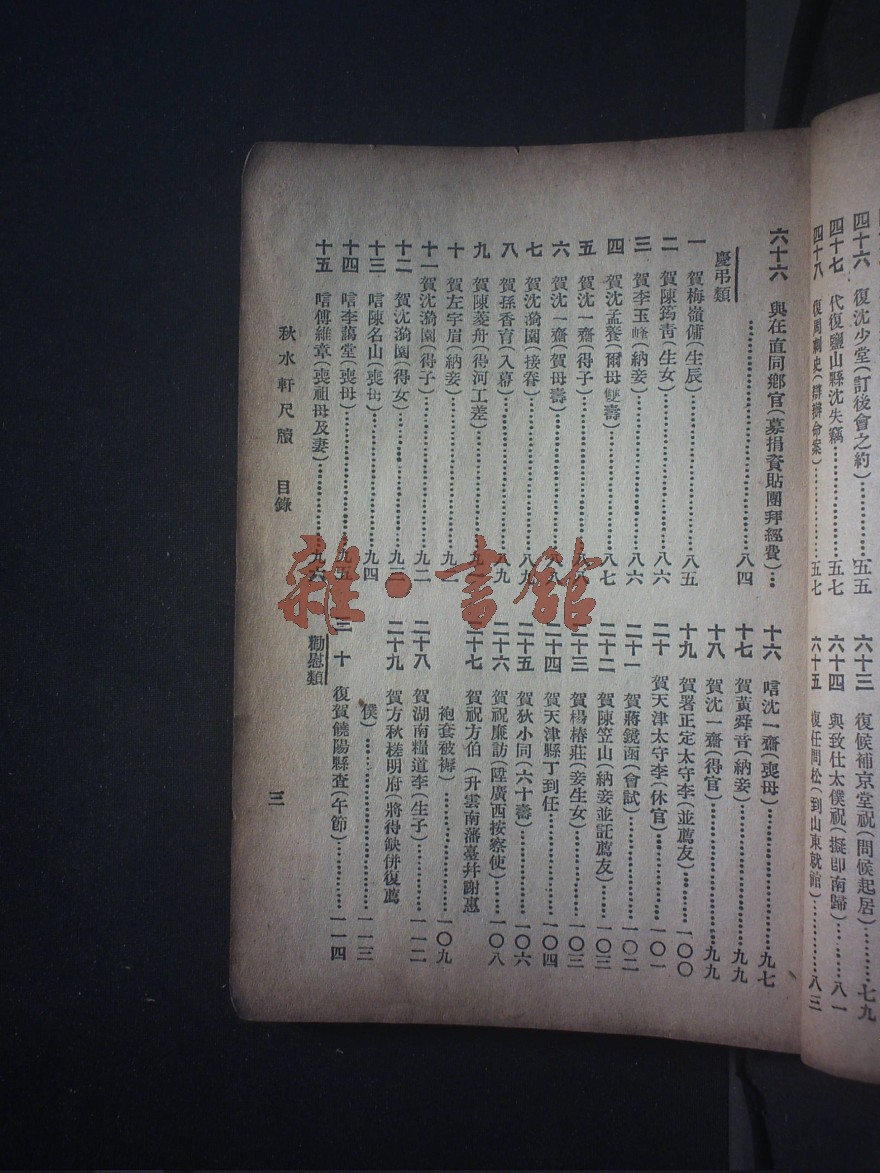 四十六 復沈少堂(訂後會之約)…………五五
四十七 代復鹽山縣沈失竊…………五七
四十八 復周觀史(辯辦命案)…………五七
六十三 復候補京堂祝(問候起居)…………七九
六十四 與致仕太僕祝(擬卽南歸)…………八一
六十五 復任問松(到山東就館)…………八三
六十六 與在直同鄉官(募捐資貼團拜經費)…
…………八四
慶弔類
一 賀梅嶺傭(生辰)…………八五
二 賀陳筠靑(生女)…………八六
三 賀李玉峰(納妾)…………八六
四 賀沈孟養(爾母雙壽)…………八七
五 賀沈一齋(得子)…………八八
六 賀沈一齋(賀母壽)…………八八
七 賀沈漪園(接眷)…………八九
八 賀孫香育(入幕)…………八九
九 賀陳菱舟(得河工差)…………九一
十 賀左宇眉(納妾)…………九一
十一 賀沈漪園(得子)…………九二
十二 賀沈漪園(得女)…………九三
十三 唁陳名山(喪母)…………九四
十四 唁李藹堂(喪母)…………九五
十五 唁傅維章(喪祖母及妻)…………九六
十六 唁沈一齋(喪母)…………九七
十七 賀黃舜音(納妾)…………九九
十八 賀沈一齋(得官)…………九九
十九 賀署正定太守李(並薦友)…………一〇〇
二十 賀天津太守李(休官)…………一〇一
二十一 賀蔣鏡函(會試)…………一〇二
二十二 賀陳笠山(納妾並託薦友)…………一〇三
二十三 賀楊椿莊(妾生女)…………一〇三
二十四 賀天津縣丁到任…………一〇四
二十五 賀狄小同(六十壽)…………一〇六
二十六 賀祝廉訪(陞廣西按察使)…………一〇八
二十七 賀祝方伯(升雲南藩臺幷謝惠
袍套被褥)…………一〇九
二十八 賀湖南糧道李(生子)…………一一二
二十九 賀方秋槎明府(將得缺併復薦
僕)…………一一三
三十 復賀饒陽縣查(午節)…………一一四
勸慰類
秋水軒尺牘 目錄
三
雜·書館